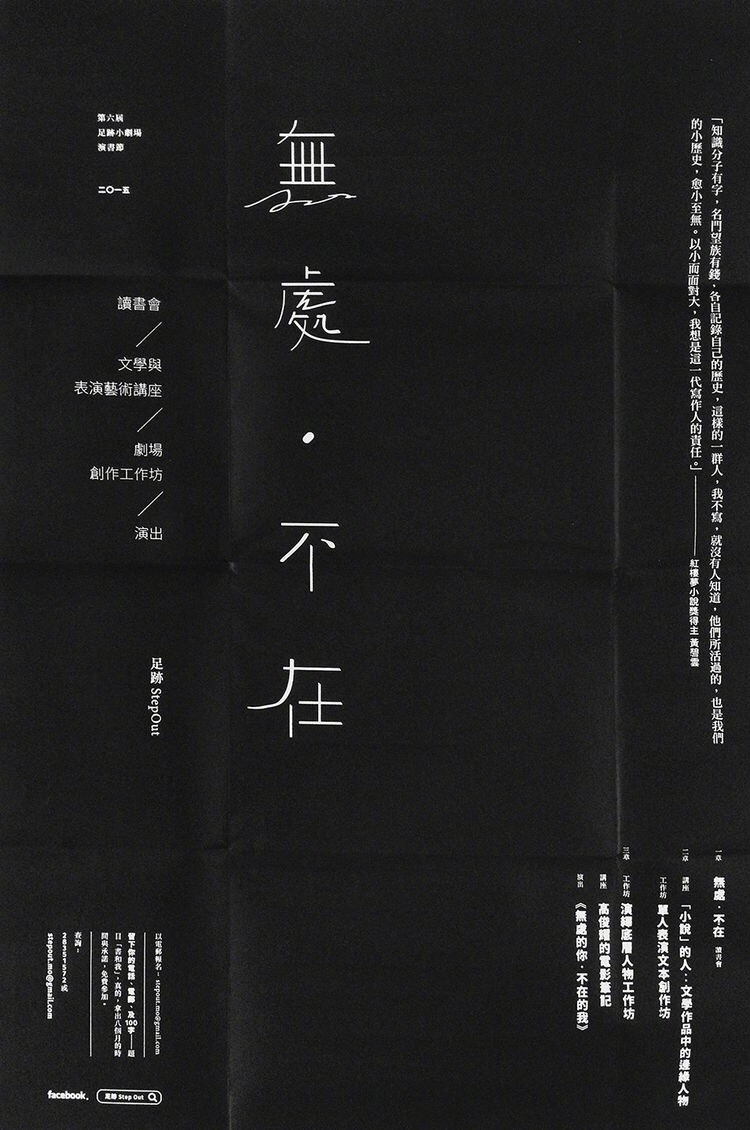 「知識分子有字，名門望族有錢，各自記錄自己的歷史，這樣的一群人，我不寫，就沒有人知道，他們所活過的，也是我們
的小歷史，愈小至無。以小而面對大，我想是這一代寫作人的責任。」——紅樓夢小說獎得主 黃碧雲
無處・不在
第六屆
足跡小劇場
演書節
二〇一五
讀書會
／
文學與
表演藝術講座
／
劇場
創作工作坊
／
演出
足跡 StepOut
一章 無處・不在 讀書會
二章 講座 「小說」的人：文學作品中的邊緣人物
工作坊 單人表演文本創作坊
三章 工作坊 演繹底層人物工作坊
講座 高俊耀的電影筆記
演出 《無處的你・不在的我》
以電郵報名：stepout.mo@gmail.com
留下你的電話、電郵、及100字——題
目「書和我」，真的，拿出八個月的時
間與承諾，免費參加。
查詢：
28351572 或
stepout.mo@gmail.com
facebook. 足跡 Step Out